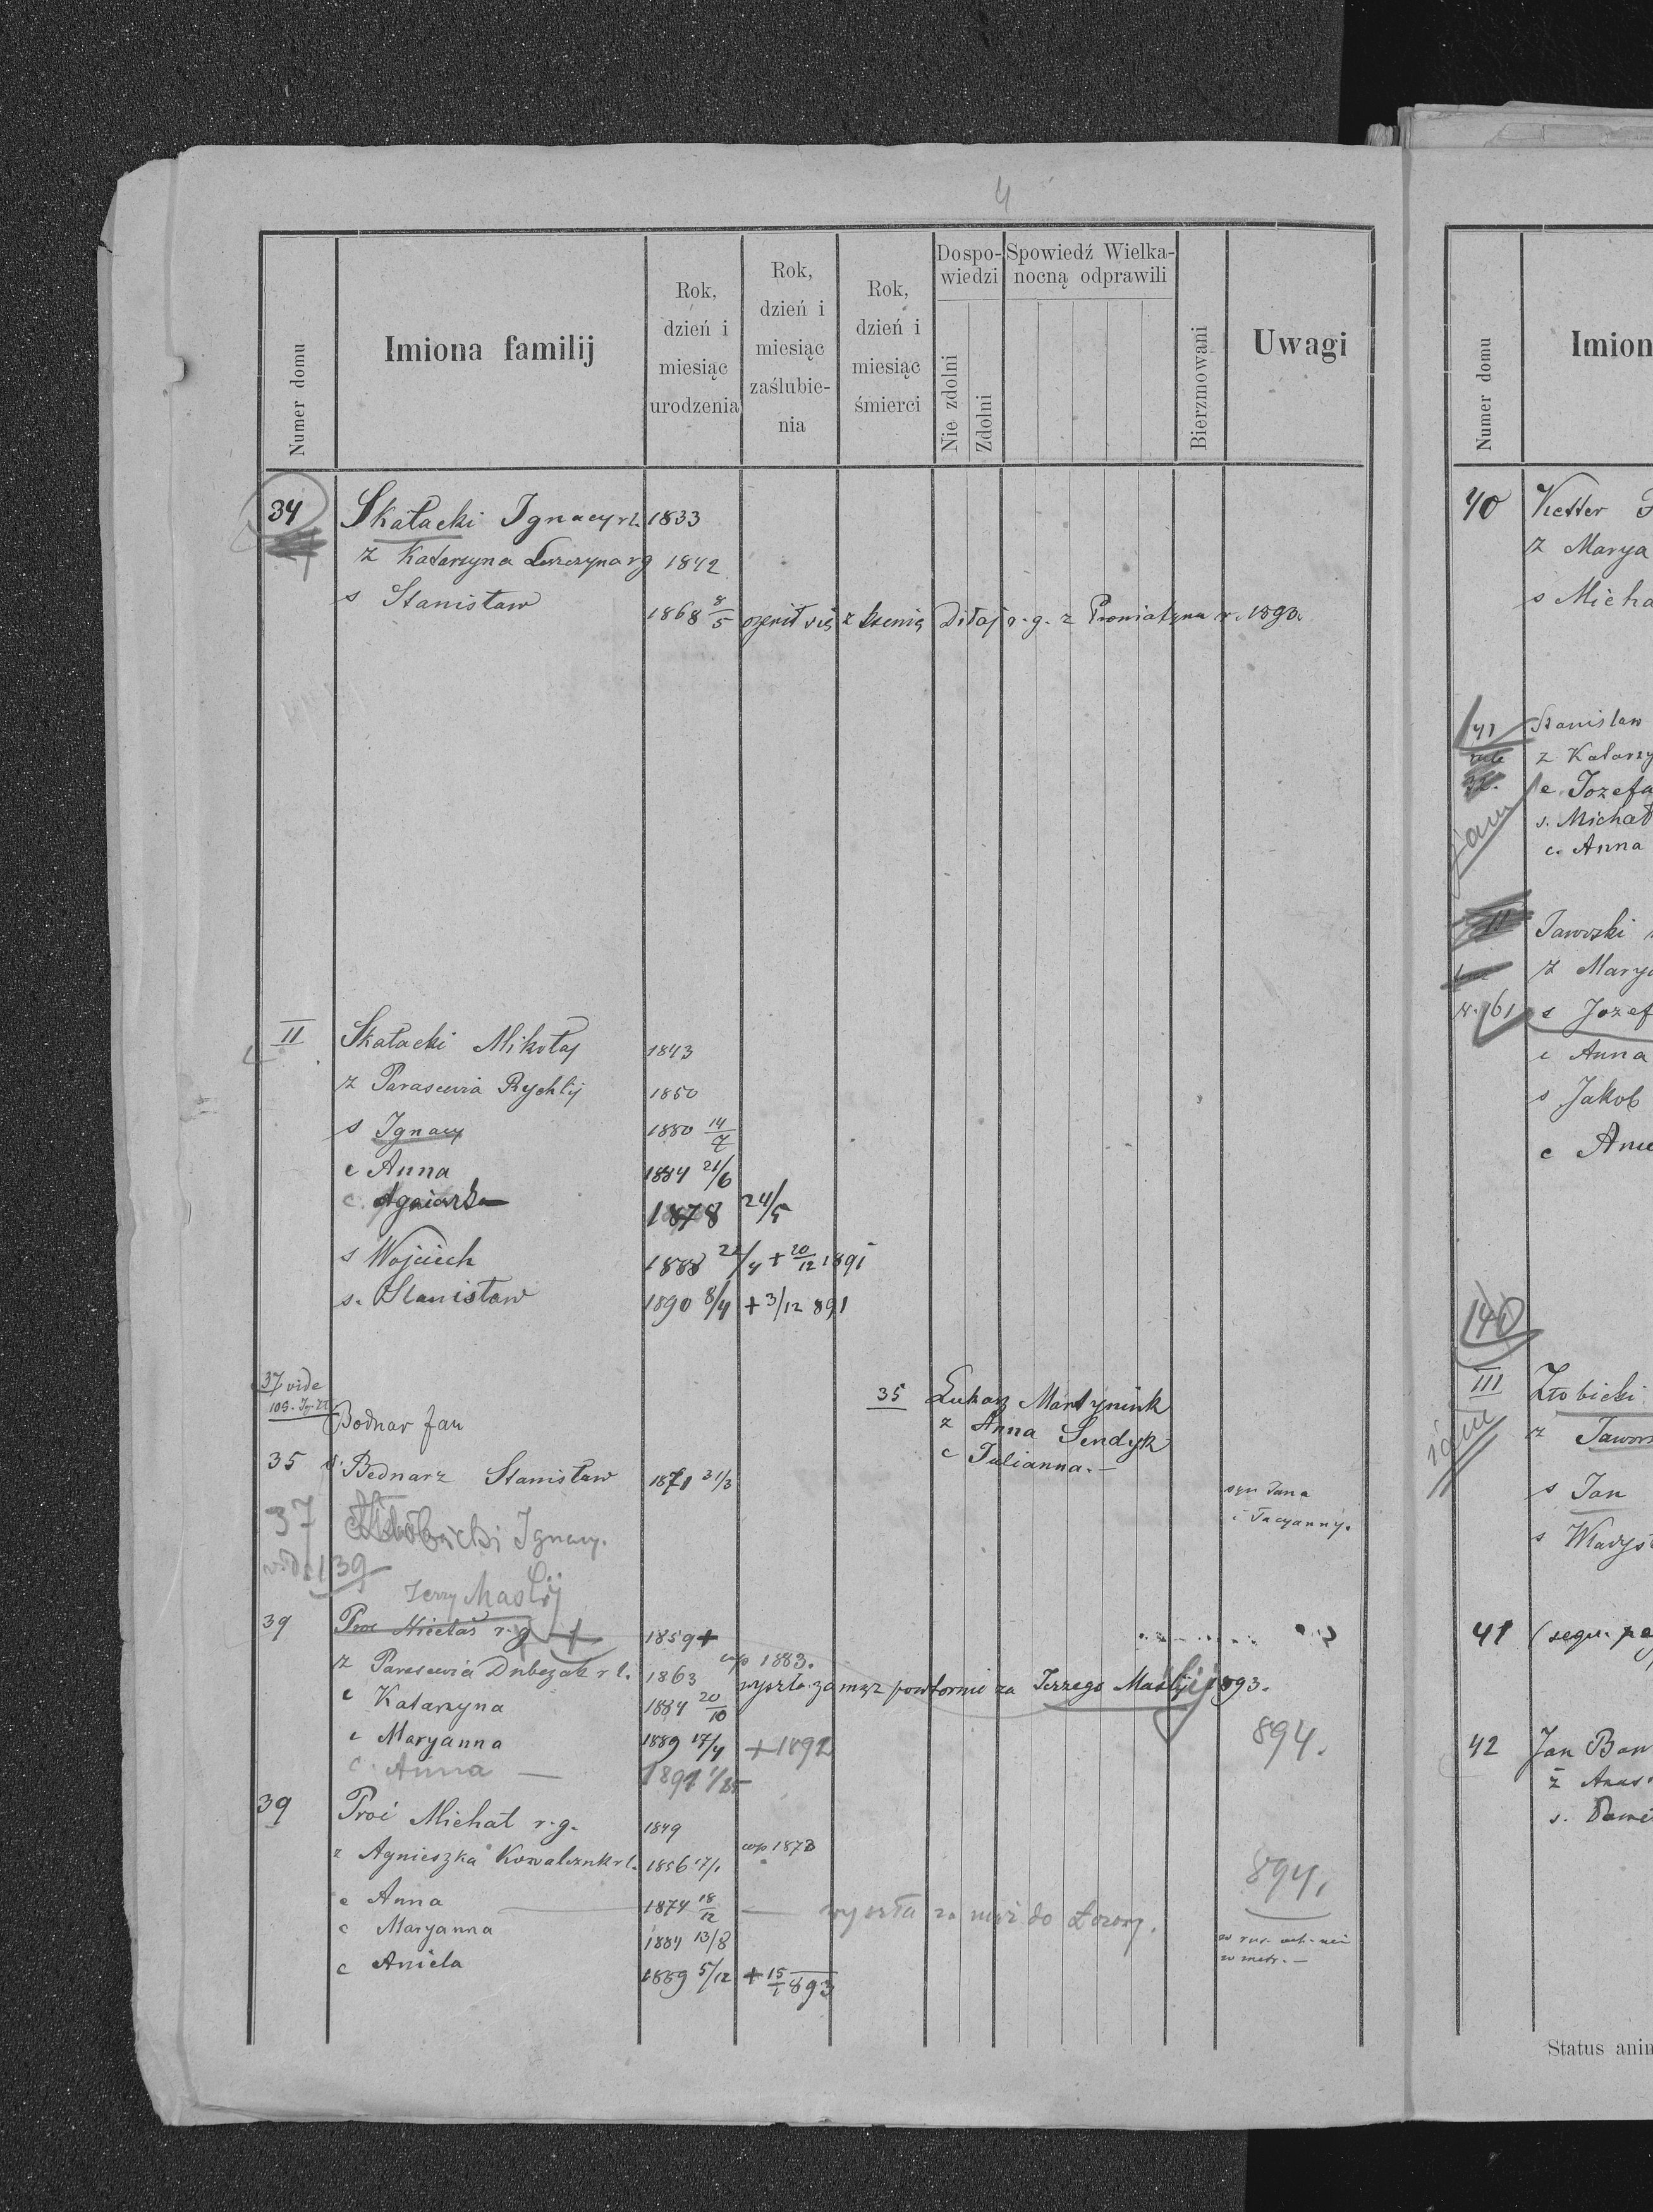 4
Numer domu
Imiona familij
Rok, dzień i miesiąc urodzenia
Rok, dzień i miesiąc zaślubienia
Rok, dzień i miesiąc śmierci
Dospowiedzi
Nie zdolni
Zdolni
Spowiedź Wielkanocną odprawili
Bierzmowani
Uwagi
34 Skałacki Ignacy r.l. 1833
z Katarzyna r g 1842
s Stanisław 1868 8/5 ożenił się z Ksenią Diłaj r.g. z r. 1893.
II Skałacki Mikołaj 1843
z Parascevia Rychlij 1850
s Ignacy 1880 14/7
c Anna 1884 21/6
c. 1878 24/5
s Wojciech 1888 /4 + 20/12 1891
s. Stanisław 1890 8/4 + 3/12 891
37 vide
109.
Bodnar Jan
35 Łukasz Martyniuk
z Anna Sendyk
c Julianna. —
35 s. Bednarz Stanisław 1871 31/3 syn Jana
i Tacyanny.
37 Ignacy.
vide 139
Jerzy Maslij
39 r. g 1859 +
z Parascevia r l. 1863 1883.
wyszła za mąż powtornie za Jerzego Maślij 893.
c Katarzyna 1884 20/10
c Maryanna 1889 17/4 + 1892 894.
c. Anna —
39 Proć Michał r. g. 1849
z Agnieszka Kowalczuk r l. 1856 17/1 1873
894,
c Anna 1874 18/12 — wyszła za mąż do
c Maryanna 1884 13/8
w metr. —
c Aniela 1889 5/12 + 15/1 893
Numer domu
Imion
40 Ketter
z Marya
s Micha
41 Stanislaw
z Katarzy
c. Jozefa
s. Michał
c. Anna
II Jaworski
z Marya
N. 61 s Jozef
c Anna
s Jakob
c
140
III Złobicki
z Jawor
s Jan
s Władys
41 (
42 Jan
z
s.
Status anim